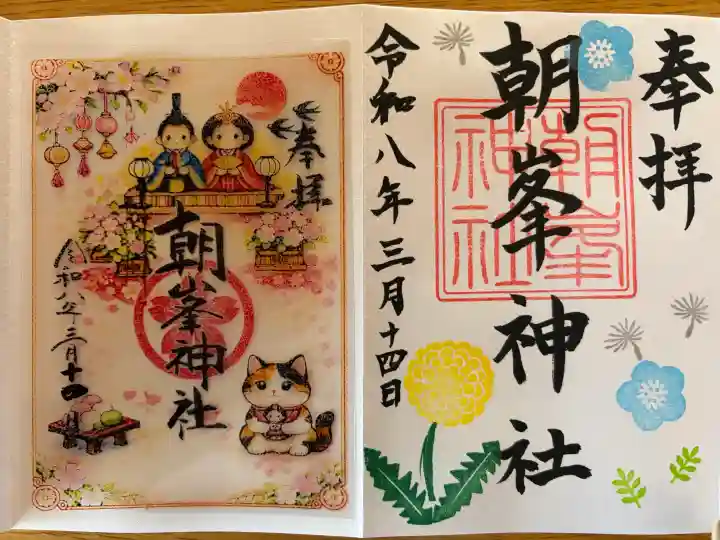 奉拝
朝峯神社
朝峯神社
令和八年三月十四日
奉拝
朝峯神社
令和八年三月十四